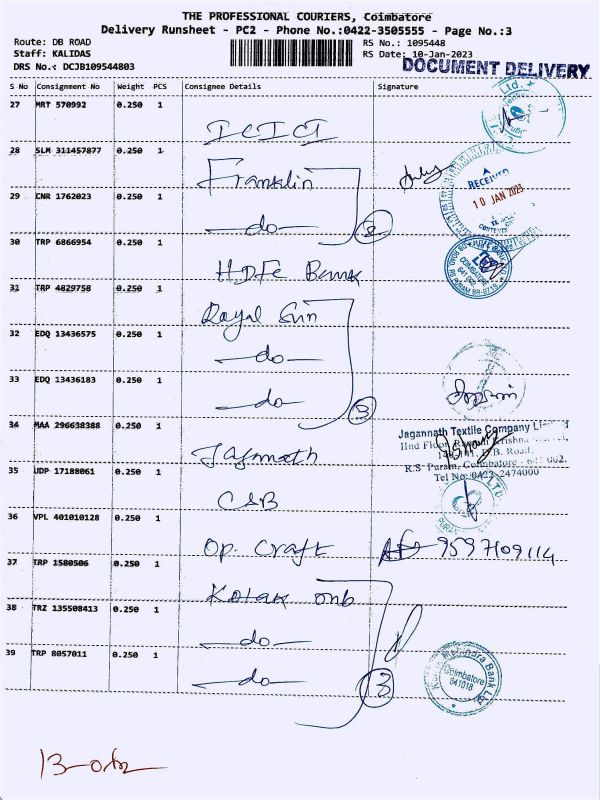 THE PROFESSIONAL COURIERS, Coimbatore
Delivery Runsheet - PC2 - Phone No.:0422-3505555 - Page No.:3
Route: DB ROAD
RS No.: 1095448
Staff: KALIDAS
RS Date: 10-Jan-2023
DRS No.: DCJB109544803
DOCUMENT DELIVERY
S No Consignment No Weight PCS Consignee Details Signature
27 MRT 570992 0.250 1 ICICI
28 SLM 311457877 0.250 1 Franklin
RECEIVED
10 JAN 2023
29 CNR 1762023 0.250 1 -do- 2
30 TRP 6866954 0.250 1 HDFC Bank
31 TRP 4829758 0.250 1 Royal Sun
32 EDQ 13436575 0.250 1 -do-
33 EDQ 13436183 0.250 1 -do- 3
34 MAA 296638388 0.250 1 Jagnnath
Jagannath Textile Company
IInd Floor
D.B. Road,
R.S. Puram, Coimbatore
Tel No: 0422-2474000
35 UDP 17188061 0.250 1 CSB
36 VPL 401010128 0.250 1 Op. Craft 9597109114
37 TRP 1580506 0.250 1 Kotak
38 TRZ 135508413 0.250 1 -do-
39 TRP 8057011 0.250 1 -do- 3
Mahindra Bank Ltd
Coimbatore
641018